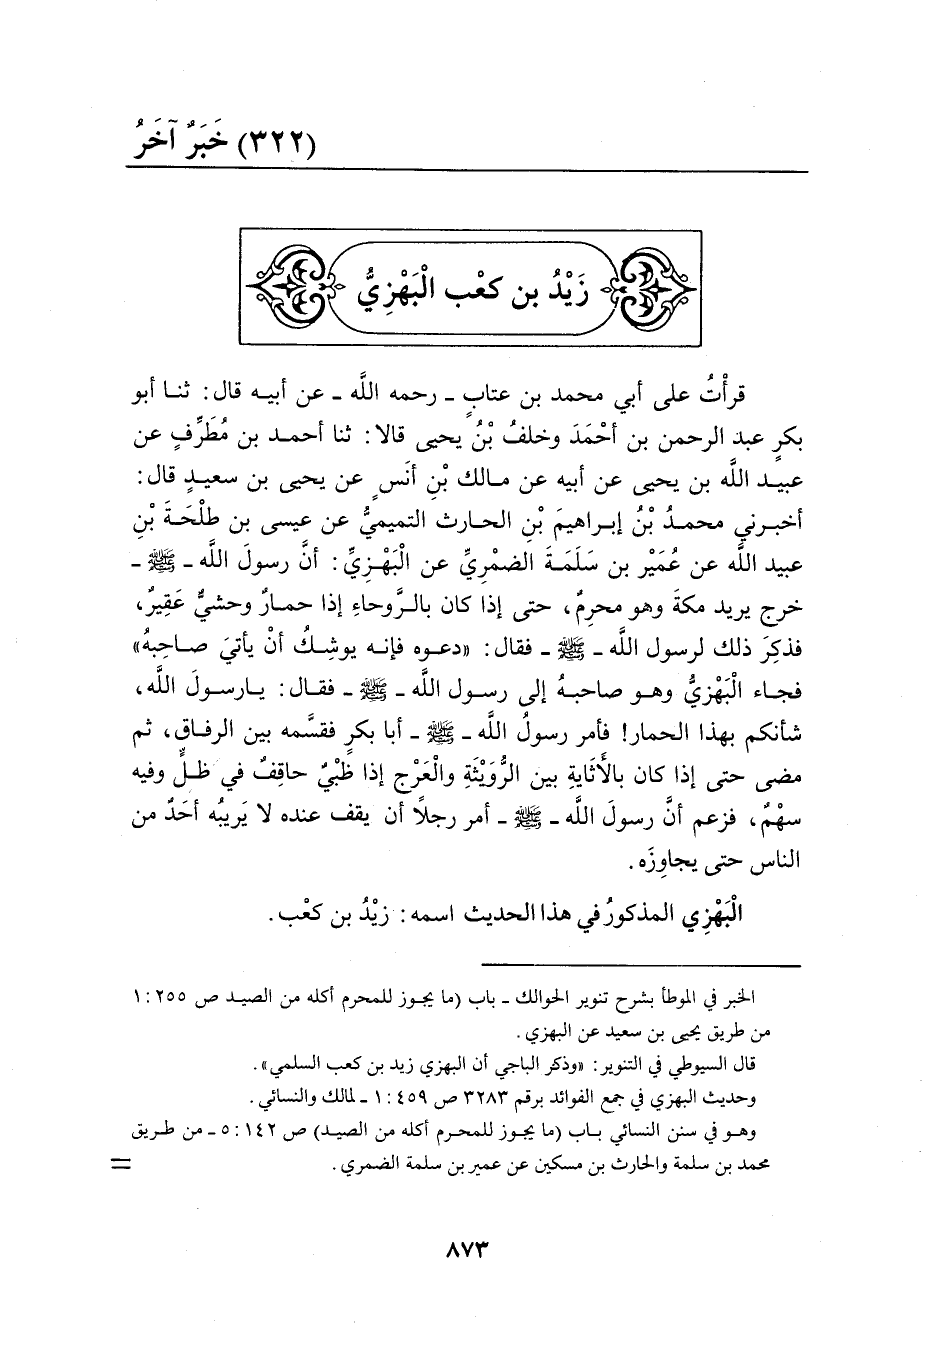 (٣٢٢) خَبَرٌ آخَرُ
زَيْدُ بن كعْب الْبَهْزِيُّ
قرأْتُ على أبي محمد بن عتابٍ ـ رحمه اللَّه ـ عن أبيه قال: ثنا أبو
بكرٍ عبد الرحمن بن أحْمَدَ وخلفُ بْنُ يحيى قالا: ثنا أحمد بن مُطَرِّفٍ عن
عبيد اللَّه بن يحيى عن أبيه عن مالك بْنِ أنَسٍ عن يحيى بن سعيدٍ قال:
أخبرني محمدُ بْنُ إبراهيمَ بْنِ الحارث التميميُّ عن عيسى بن طلْحَةَ بْنِ
عبيد اللَّه عن عُمَيْر بن سَلَمَةَ الضمْرِيِّ عن الْبَهْزِيِّ: أنَّ رسولَ اللَّه ـ ﷺ ـ
خرج يريد مكةَ وهو محرِمٌ، حتى إذا كان بالرَّوحاءِ إذا حمارٌ وحشيٌّ عَقِيرٌ،
فذكِرَ ذلك لرسول اللَّه ـ ﷺ ـ فقال: «دعوه فإنه يوشِكُ أنْ يأتيَ صاحِبهُ»
فجاء الْبَهْزيُّ وهو صاحبهُ إلى رسول اللَّه ـ ﷺ ـ فقال: يارسولَ اللَّه،
شأنكم بهذا الحمار! فأمر رسولُ اللَّه ـ ﷺ ـ أبا بكرٍ فقسَّمه بين الرفاق، ثم
مضى حتى إذا كان بالأَثَايةِ بين الرُّوَيْثَةِ والْعَرْج إذا ظَبْيٌ حاقِفٌ في ظلٍّ وفيه
سهْمٌ، فزعم أنَّ رسولَ اللَّه ـ ﷺ ـ أمر رجلاً أن يقف عنده لا يَريبُه أحَدٌ من
الناس حتى يجاوِزَه.
الْبَهْزِي المذكورُ في هذا الحديث اسمه: زيْدُ بن كعْب.
الخبر في الموطأ بشرح تنوير الحوالك ـ باب (ما يجوز للمحرم أكله من الصيد ص ٢٥٥ : ١
من طريق يحيى بن سعيد عن البهزي.
قال السيوطي في التنوير: «وذكر الباجي أن البهزي زيد بن كعب السلمي».
وحديث البهزي في جمع الفوائد برقم ٣٢٨٣ ص ٤٥٩ : ١ ـ لمالك والنسائي.
وهو في سنن النسائي باب (ما يجوز للمحرم أكله من الصيد) ص ١٤٢ : ٥ ـ من طريق
محمد بن سلمة والحارث بن مسكين عن عمير بن سلمة الضمري. =
٨٧٣